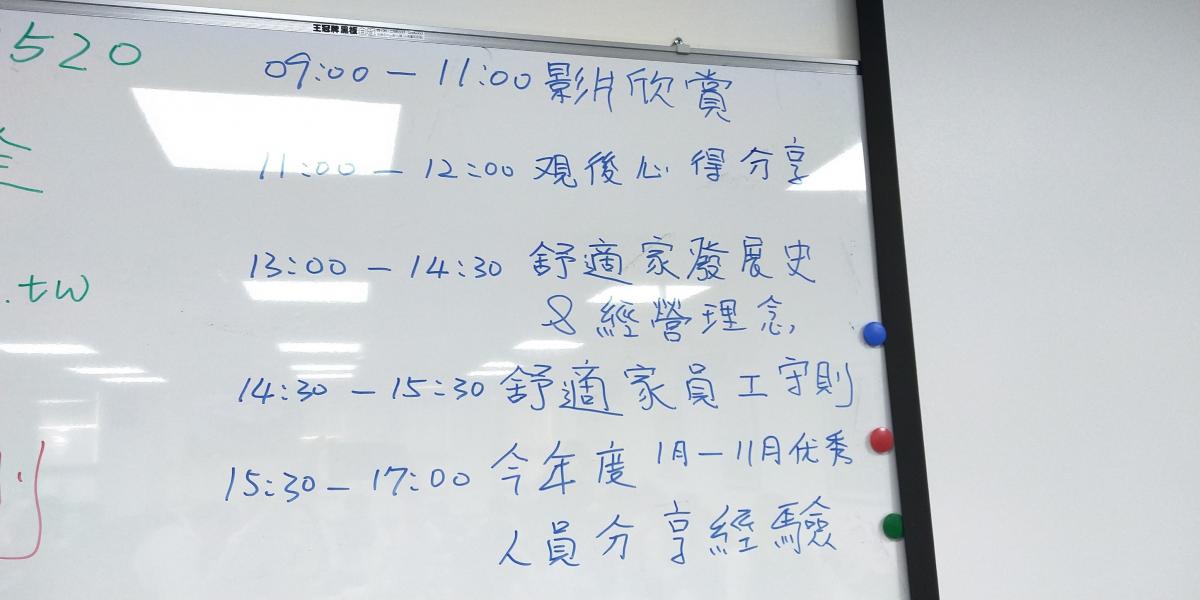 王冠牌黑板
520
09:00 — 11:00 影片欣賞
11:00 — 12:00 观後心得分享
13:00 — 14:30 舒適家發展史
& 經營理念
.tw
14:30 — 15:30 舒適家員工守則
15:30 — 17:00 今年度 1月—11月优秀
人員分享經驗